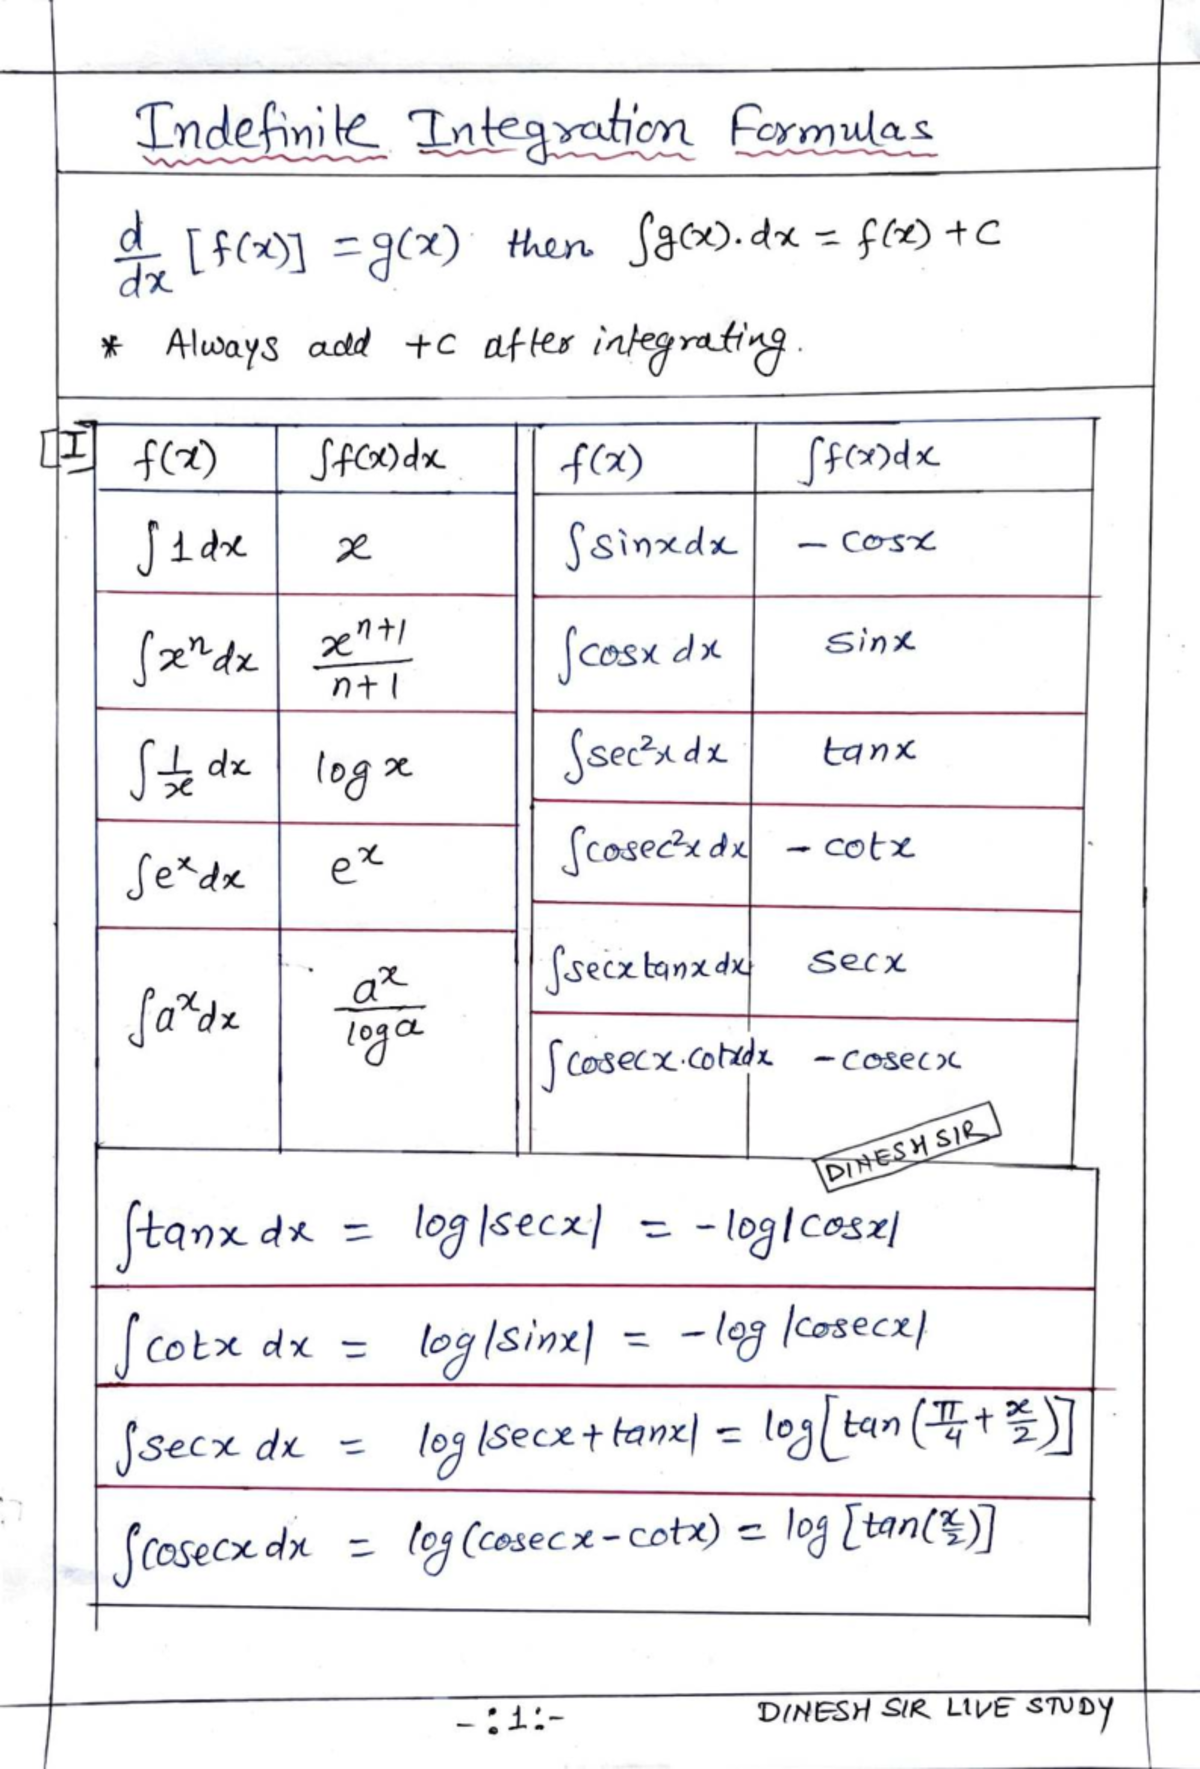 Indefinite Integration Formulas
d/dx [f(x)] = g(x) then ∫g(x).dx = f(x) + C
* Always add +C after integrating.
[I]
f(x) ∫f(x)dx f(x) ∫f(x)dx
∫1dx x ∫sinxdx - cosx
∫xⁿdx xⁿ⁺¹/n+1 ∫cosx dx sinx
∫1/x dx log x ∫sec²x dx tanx
∫eˣdx eˣ ∫cosec²x dx - cotx
∫aˣdx aˣ/loga ∫secxtanxdx secx
∫cosecx.cotxdx - cosecx
DINESH SIR
∫tanx dx = log|secx| = -log|cosx|
∫cotx dx = log|sinx| = -log|cosecx|
∫secx dx = log|secx+tanx| = log[tan(π/4 + x/2)]
∫cosecxdx = log(cosecx-cotx) = log[tan(x/2)]
-:1:- DINESH SIR LIVE STUDY